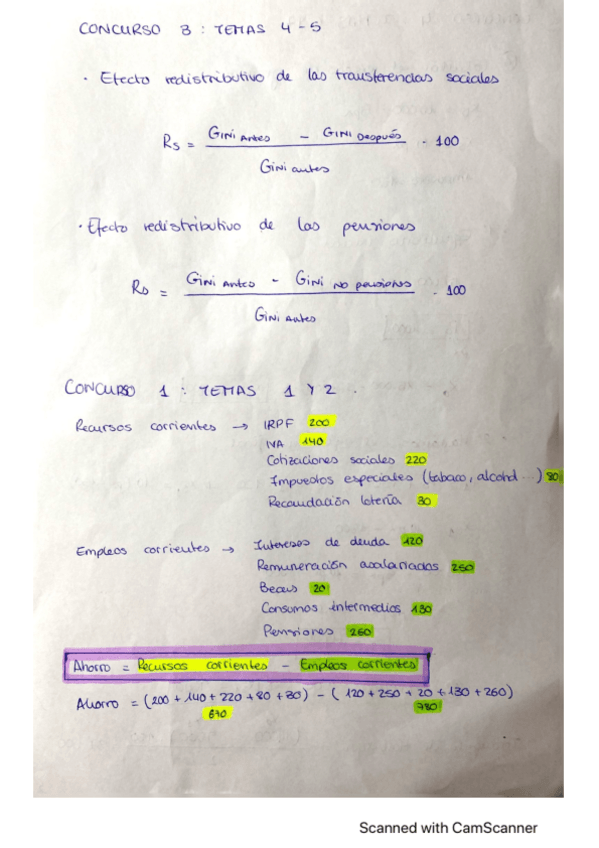 CONCURSO 3 : TEMAS 4-5
· Efecto redistributivo de las transferencias sociales
Rs = Gini Antes - Gini Después / Gini antes · 100
· Efecto redistributivo de las pensiones
RD = Gini Antes - Gini no pensiones / Gini Antes · 100
CONCURSO 1 : TEMAS 1 Y 2
Recursos corrientes → IRPF 200
IVA 140
Cotizaciones sociales 220
Impuestos especiales (tabaco, alcohol...) 80
Recaudación lotería 30
Empleos corrientes → Intereses de deuda 120
Remuneración asalariados 250
Becas 20
Consumos intermedios 130
Pensiones 260
Ahorro = Recursos corrientes - Empleos corrientes
Ahorro = (200 + 140 + 220 + 80 + 30) - (120 + 250 + 20 + 130 + 260)
670 780
Scanned with CamScanner